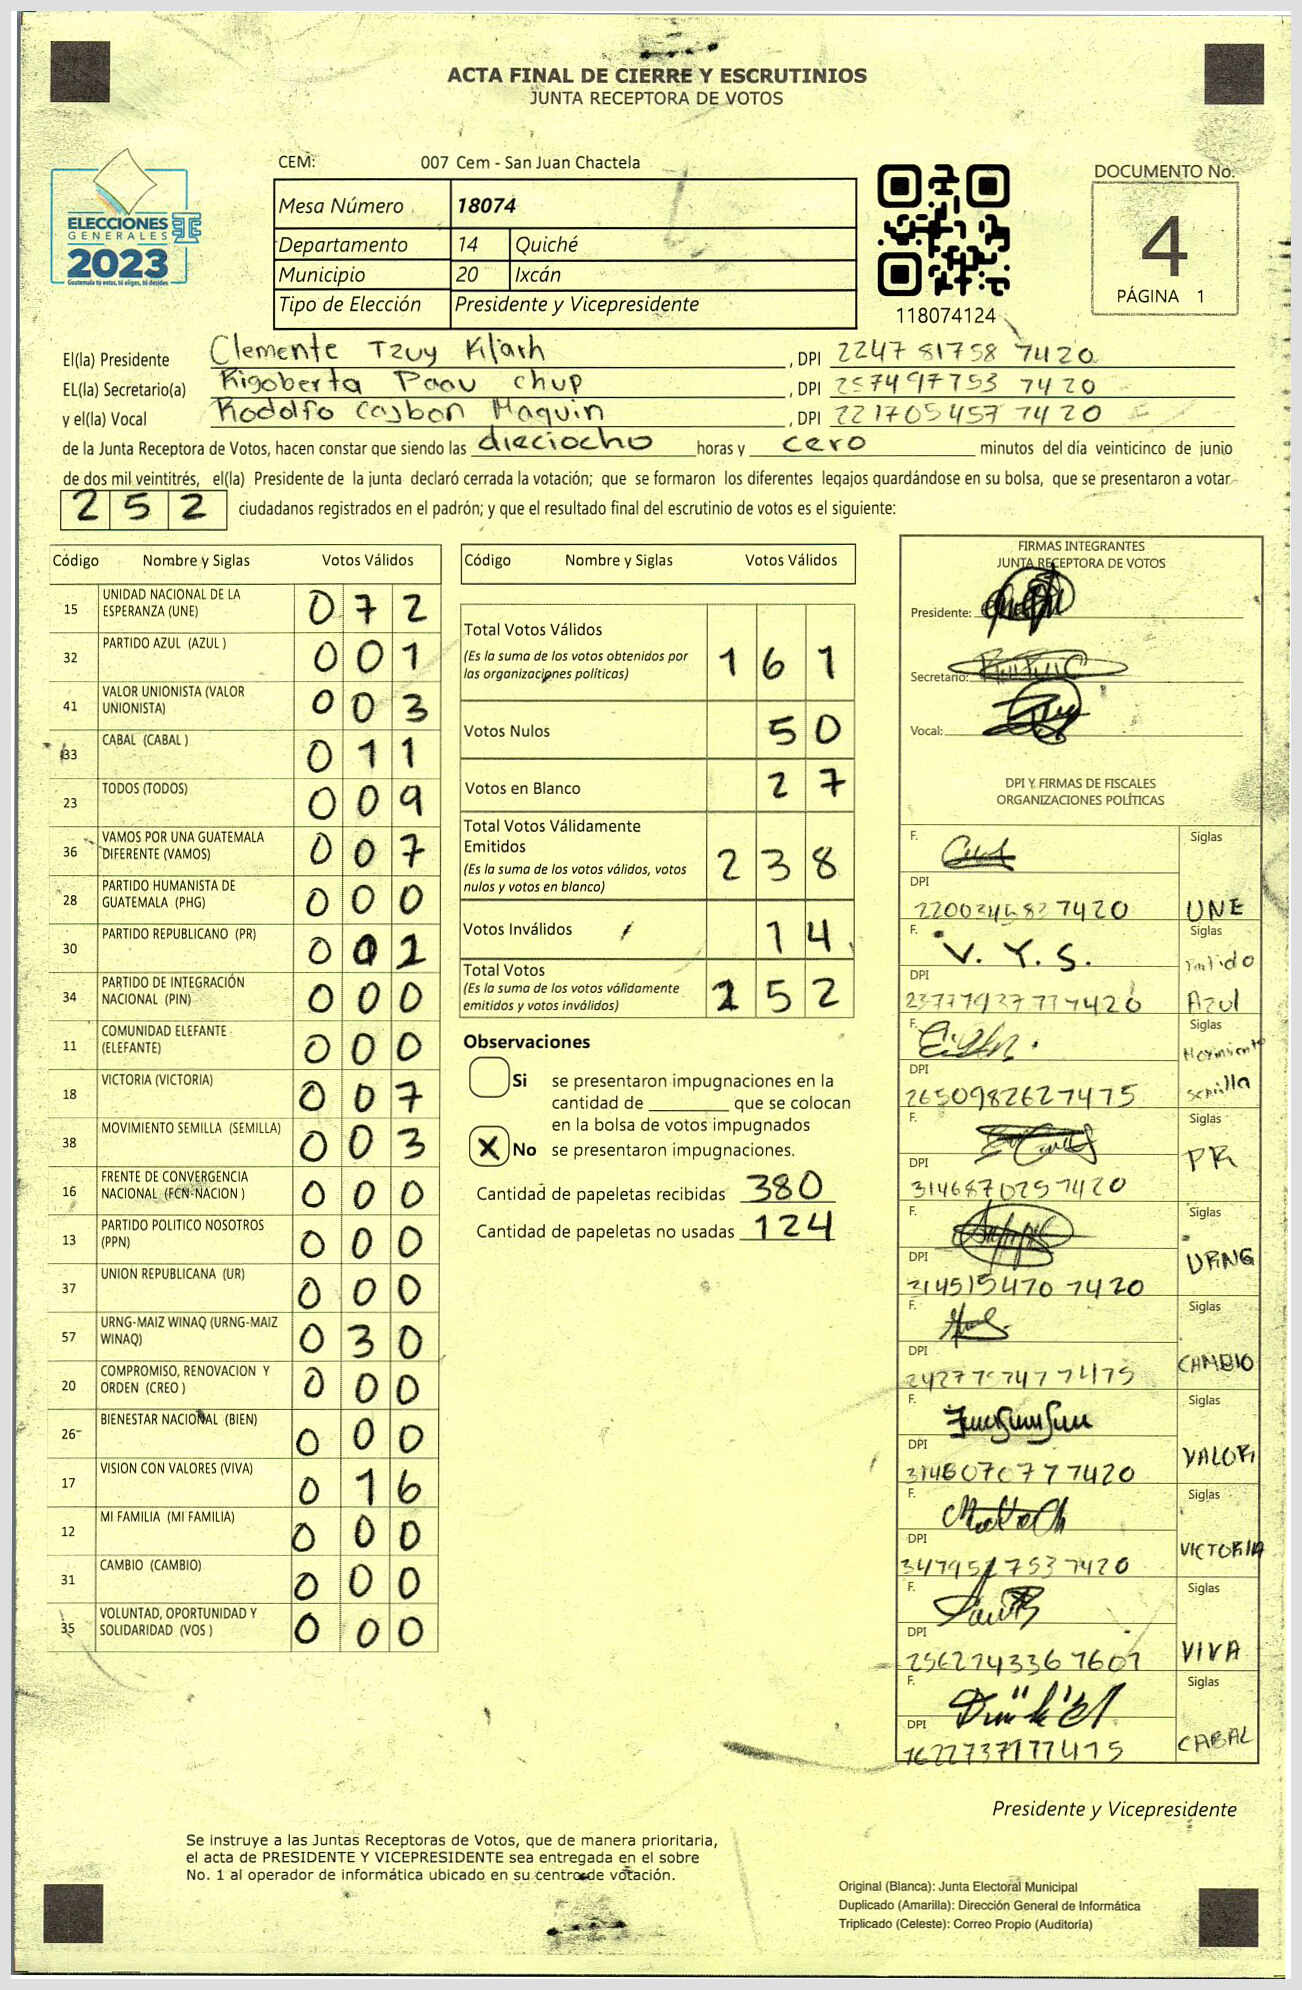 ACTA FINAL DE CIERRE Y ESCRUTINIOS
JUNTA RECEPTORA DE VOTOS
ELECCIONES
GENERALES
2023
Guatemala tú votas, tú eliges, tú decides
CEM: 007 Cem - San Juan Chactela
Mesa Número 18074
Departamento 14 Quiché
Municipio 20 Ixcán
Tipo de Elección Presidente y Vicepresidente
118074124
DOCUMENTO No.
4
PÁGINA 1
El(la) Presidente Clemente Tzuy , DPI 2247 81758 7420
EL(la) Secretario(a) Rigoberta Paau chup , DPI 257497753 7420
y el(la) Vocal Rodolfo Caybon Maquin , DPI 221705457 7420
de la Junta Receptora de Votos, hacen constar que siendo las dieciocho horas y cero minutos del día veinticinco de junio
de dos mil veintitrés, el(la) Presidente de la junta declaró cerrada la votación; que se formaron los diferentes legajos guardándose en su bolsa, que se presentaron a votar
252 ciudadanos registrados en el padrón; y que el resultado final del escrutinio de votos es el siguiente:
Código Nombre y Siglas Votos Válidos
15 UNIDAD NACIONAL DE LA ESPERANZA (UNE) 072
32 PARTIDO AZUL (AZUL ) 001
41 VALOR UNIONISTA (VALOR UNIONISTA) 003
33 CABAL (CABAL ) 011
23 TODOS (TODOS) 009
36 VAMOS POR UNA GUATEMALA DIFERENTE (VAMOS) 007
28 PARTIDO HUMANISTA DE GUATEMALA (PHG) 000
30 PARTIDO REPUBLICANO (PR) 002
34 PARTIDO DE INTEGRACIÓN NACIONAL (PIN) 000
11 COMUNIDAD ELEFANTE (ELEFANTE) 000
18 VICTORIA (VICTORIA) 007
38 MOVIMIENTO SEMILLA (SEMILLA) 003
16 FRENTE DE CONVERGENCIA NACIONAL (FCN-NACION ) 000
13 PARTIDO POLITICO NOSOTROS (PPN) 000
37 UNION REPUBLICANA (UR) 000
57 URNG-MAIZ WINAQ (URNG-MAIZ WINAQ) 030
20 COMPROMISO, RENOVACION Y ORDEN (CREO ) 000
26 BIENESTAR NACIONAL (BIEN) 000
17 VISION CON VALORES (VIVA) 016
12 MI FAMILIA (MI FAMILIA) 000
31 CAMBIO (CAMBIO) 000
35 VOLUNTAD, OPORTUNIDAD Y SOLIDARIDAD (VOS ) 000
Código Nombre y Siglas Votos Válidos
Total Votos Válidos 161
(Es la suma de los votos obtenidos por
las organizaciones políticas)
Votos Nulos 50
Votos en Blanco 27
Total Votos Válidamente
Emitidos 238
(Es la suma de los votos válidos, votos
nulos y votos en blanco)
Votos Inválidos 14
Total Votos 252
(Es la suma de los votos válidamente
emitidos y votos inválidos)
Observaciones
Si se presentaron impugnaciones en la
cantidad de ________ que se colocan
en la bolsa de votos impugnados
X No se presentaron impugnaciones.
Cantidad de papeletas recibidas 380
Cantidad de papeletas no usadas 124
FIRMAS INTEGRANTES
JUNTA RECEPTORA DE VOTOS
Presidente:
Secretario:
Vocal:
DPI Y FIRMAS DE FISCALES
ORGANIZACIONES POLÍTICAS
F. Siglas
DPI
UNE
F. V. Y. S. Siglas
DPI Partido
Azul
F. Siglas
DPI Movimiento
2650982627475 Semilla
F. Siglas
DPI PR
3146870257420
F. Siglas
DPI URNG
314515470 7420
F. Siglas
DPI CAMBIO
F. Siglas
DPI VALOR
F. Siglas
DPI VICTORIA
F. Siglas
DPI VIVA
2562743367601
F. Siglas
DPI CABAL
Presidente y Vicepresidente
Se instruye a las Juntas Receptoras de Votos, que de manera prioritaria,
el acta de PRESIDENTE Y VICEPRESIDENTE sea entregada en el sobre
No. 1 al operador de informática ubicado en su centro de votación.
Original (Blanca): Junta Electoral Municipal
Duplicado (Amarilla): Dirección General de Informática
Triplicado (Celeste): Correo Propio (Auditoría)